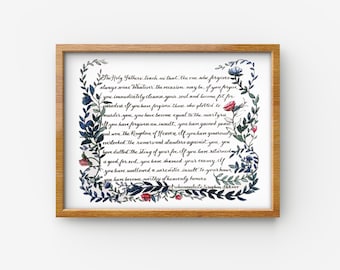 The Holy Fathers teach us that, The one who forgives
always wins. Whatever the occasion may be, if you forgive
you immediately cleanse your soul and become fit for
paradise. If you have forgiven those who plotted to
murder you, you have become equal to the martyrs.
If you have forgiven an insult, you have gained peace
and won the Kingdom of Heaven. If you have generously
overlooked the rumors and slanders against you, you
have dulled the sting of your foe. If you have returned
a good for evil, you have shamed your enemy. If you
have swallowed a sarcastic insult to your honor,
you have become worthy of heavenly honors.